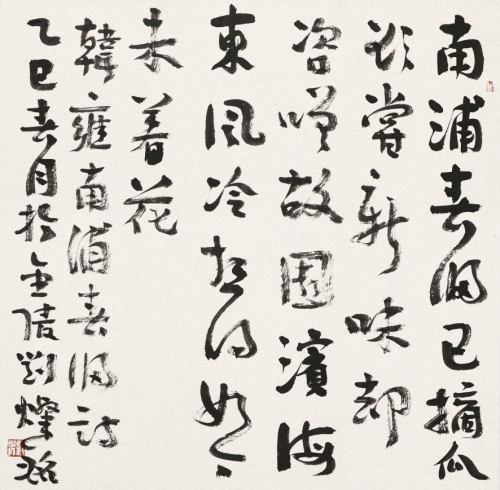 南浦春歸已摘瓜
欣嘗新味却
咨嗟故園濱海
東風冷想得如今
未着花
韓雍南浦春歸詩
乙巳春月於金陵劉燦銘